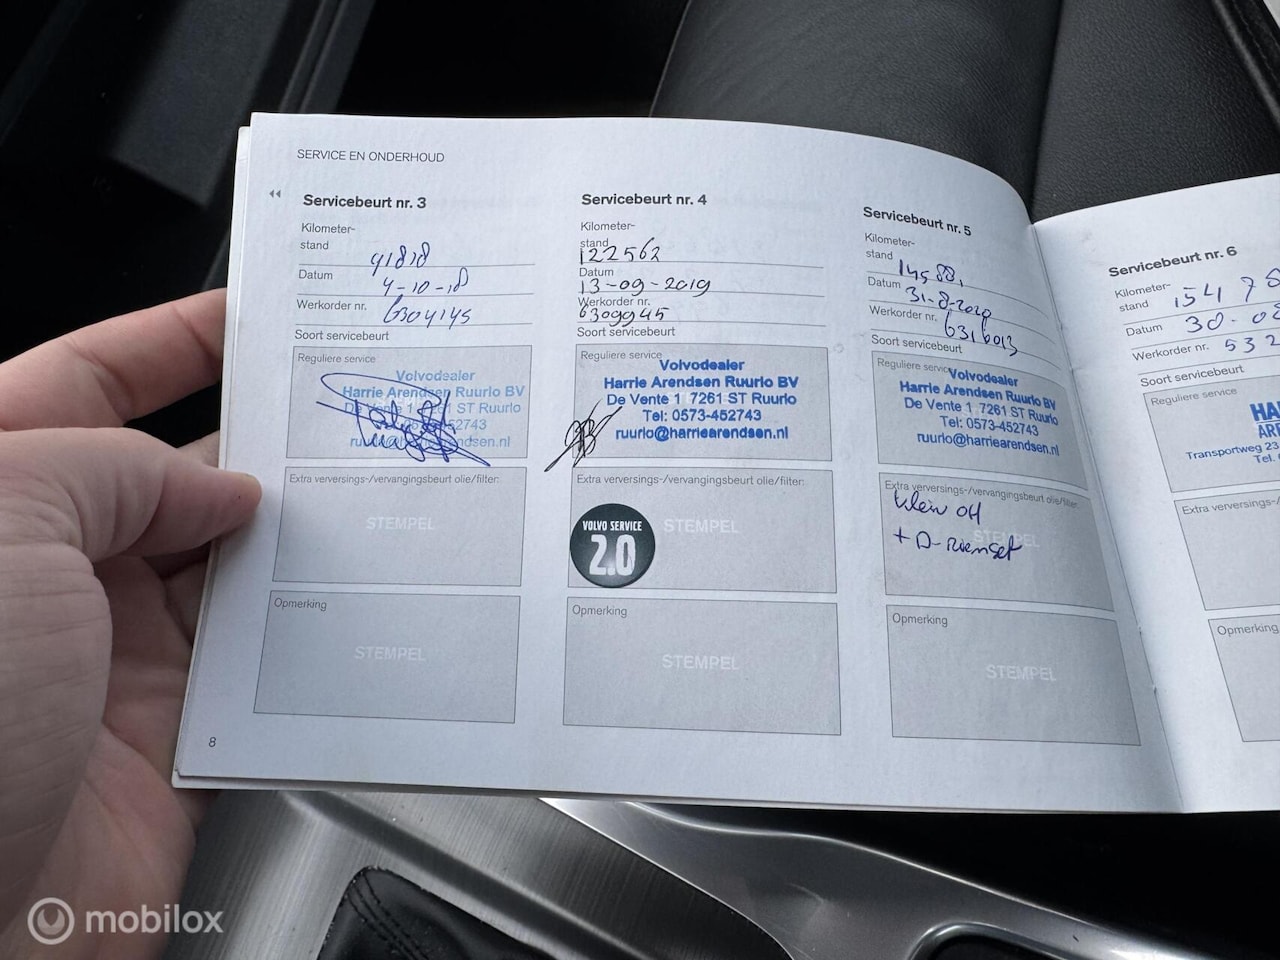 SERVICE EN ONDERHOUD
Servicebeurt nr. 3
Kilometer-
stand 91818
Datum 4-10-18
Werkorder nr. 6304145
Soort servicebeurt
Reguliere service
Volvodealer
Harrie Arendsen Ruurlo BV
De Vente 1 7261 ST Ruurlo
52743
ruurlo@harriearendsen.nl
Extra verversings-/vervangingsbeurt olie/filter:
STEMPEL
Opmerking
STEMPEL
8
Servicebeurt nr. 4
Kilometer-
stand
122562
Datum
13-09-2019
Werkorder nr.
6309945
Soort servicebeurt
Reguliere service
Volvodealer
Harrie Arendsen Ruurlo BV
De Vente 1 7261 ST Ruurlo
Tel: 0573-452743
ruurlo@harriearendsen.nl
Extra verversings-/vervangingsbeurt olie/filter:
STEMPEL
VOLVO SERVICE
2.0
Opmerking
STEMPEL
Servicebeurt nr. 5
Kilometer-
stand
Datum 31-8-2020
Werkorder nr. 6316013
Soort servicebeurt
Reguliere service
Volvodealer
Harrie Arendsen Ruurlo BV
De Vente 1 7261 ST Ruurlo
Tel: 0573-452743
ruurlo@harriearendsen.nl
Extra verversings-/vervangingsbeurt olie/filter:
Klein OH
+ D-riemset
Opmerking
STEMPEL
Servicebeurt nr. 6
Kilometer-
stand 154 78
Datum 30-08
Werkorder nr. 532
Soort servicebeurt
Reguliere service
HA
ARE
Transportweg 23
Tel.
Extra verversings-/
Opmerking
mobilox